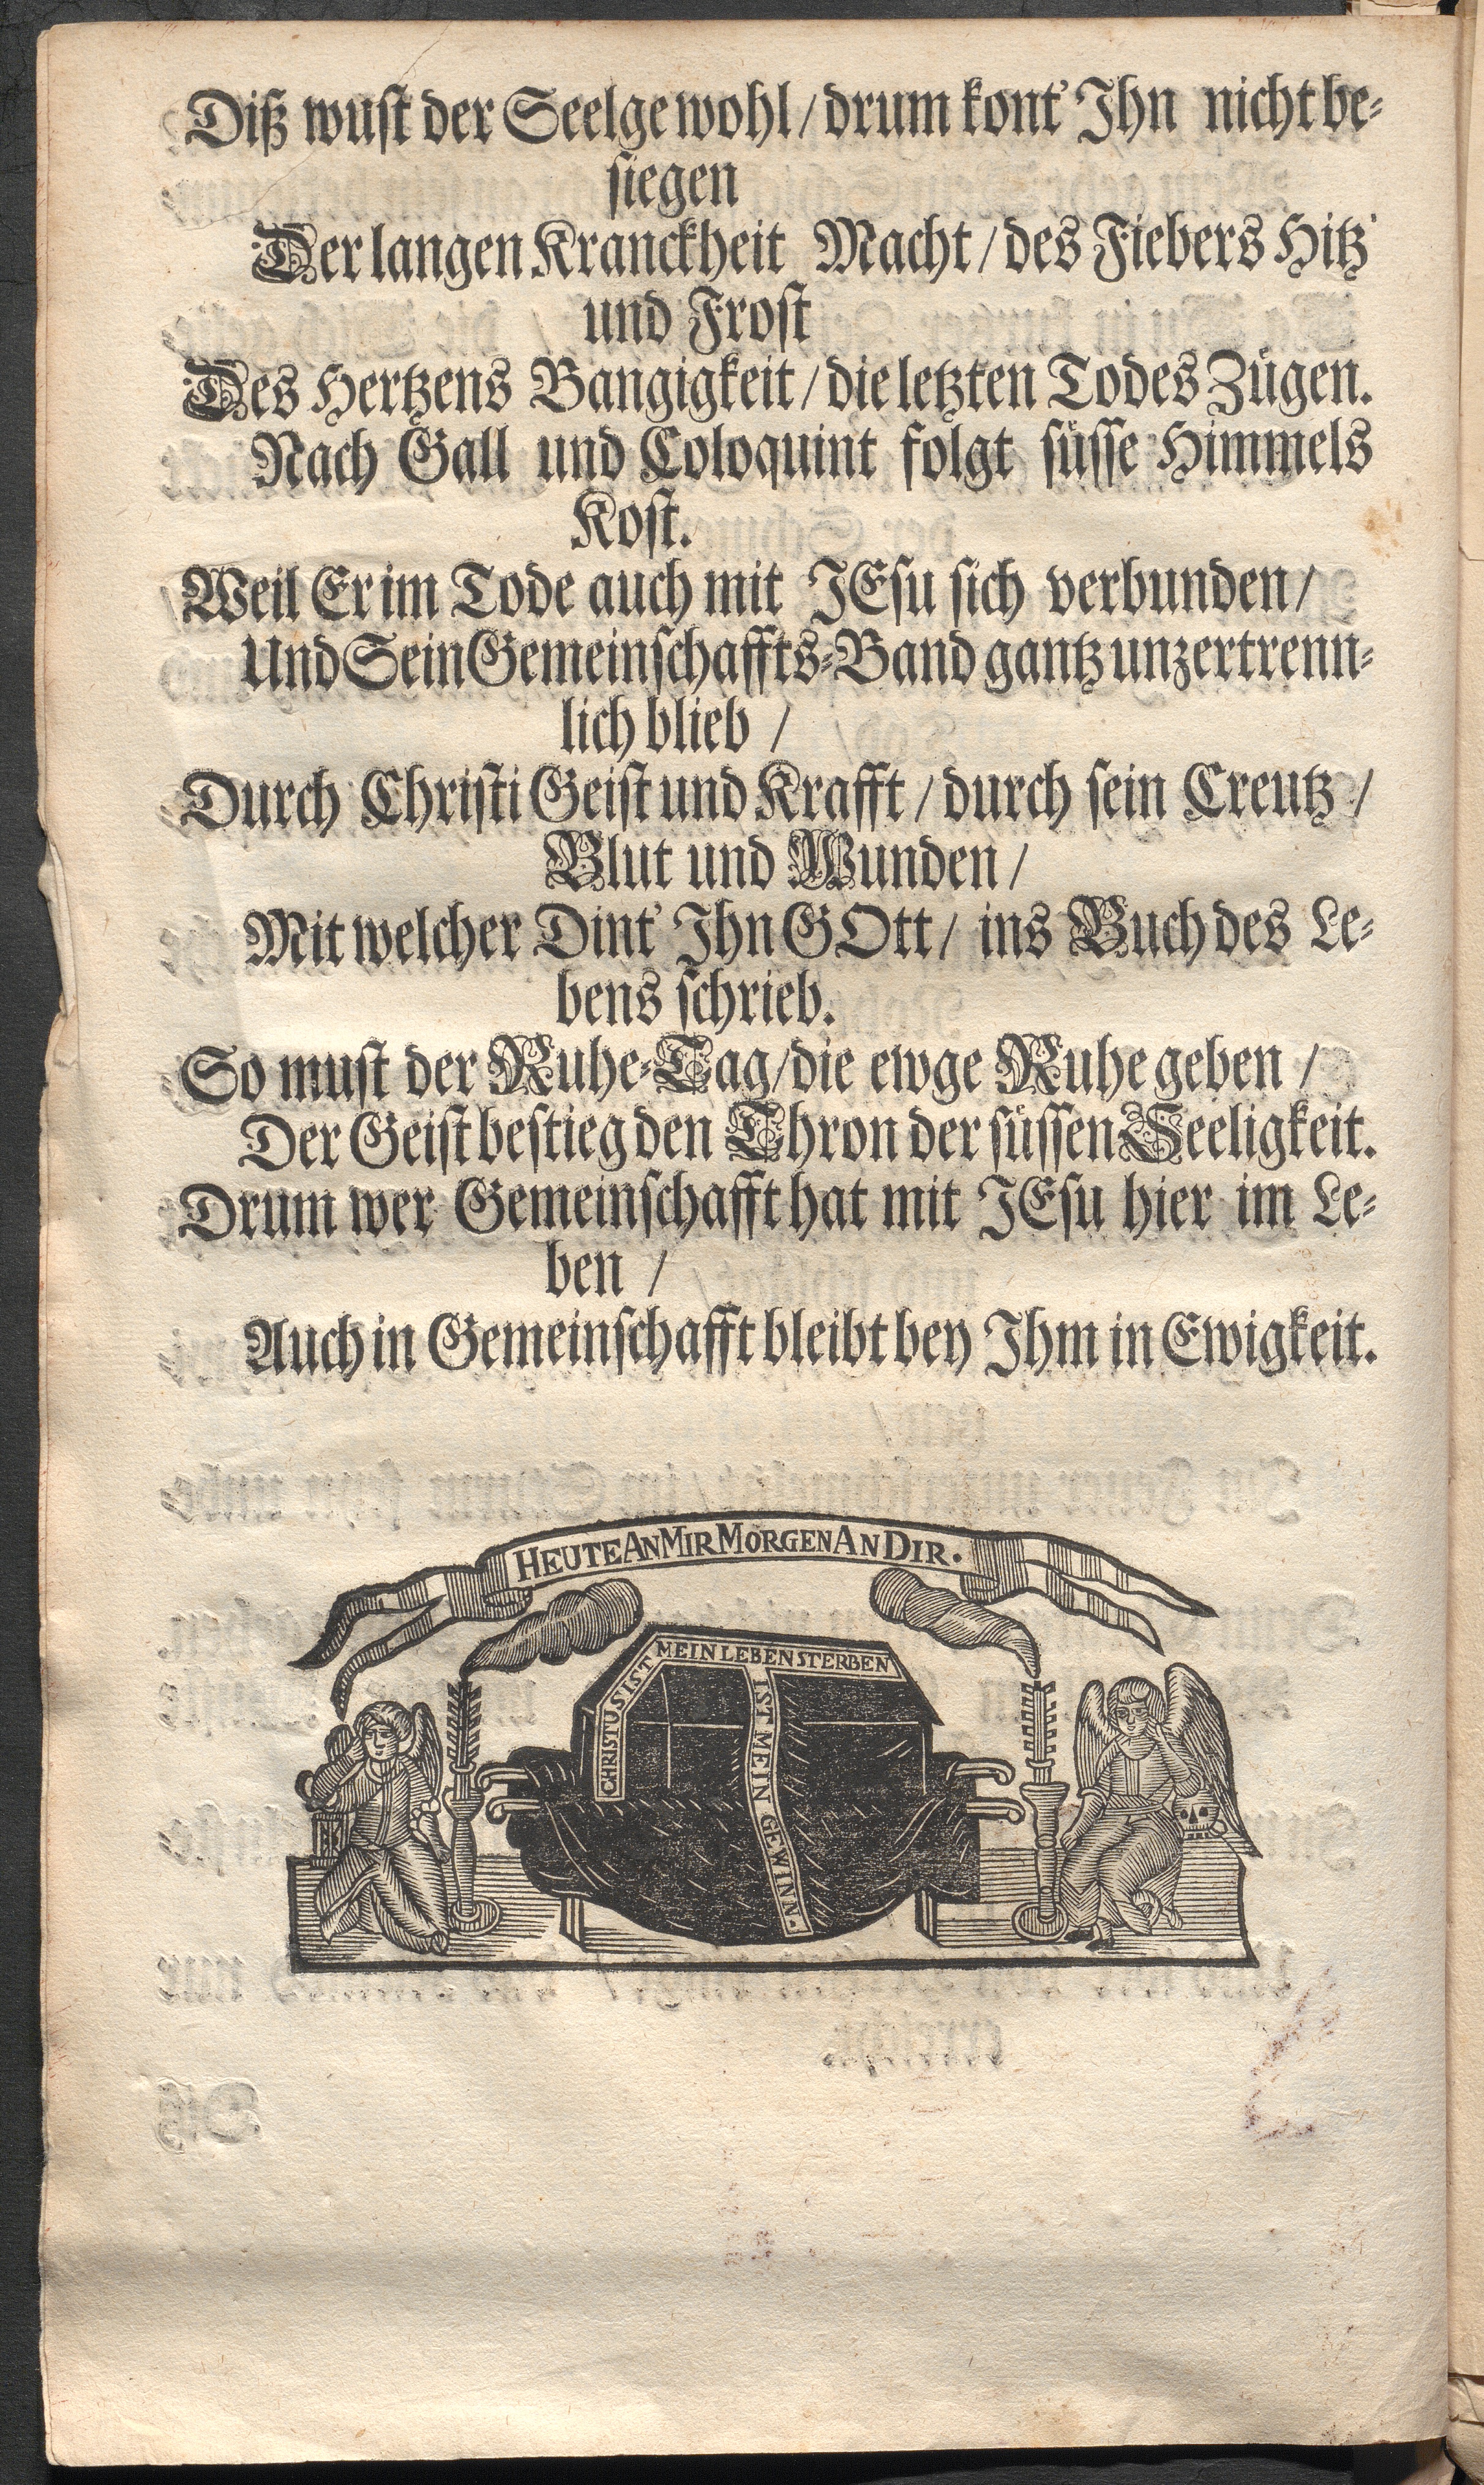 Diß wust der Seelge wohl / drum kont' Ihn nicht be-
siegen
Der langen Kranckheit Macht / des Fiebers Hitz'
und Frost
Des Hertzens Bangigkeit / die letzten Todes Zügen.
Nach Gall und Coloquint folgt süsse Himmels
Kost.
Weil Er im Tode auch mit JEsu sich verbunden /
Und Sein Gemeinschaffts-Band gantz unzertrenn-
lich blieb /
Durch Christi Geist und Krafft / durch sein Creutz /
Blut und Wunden /
Mit welcher Dint' Ihn GOtt / ins Buch des Le-
bens schrieb.
So must der Ruhe-Tag / die ewge Ruhe geben /
Der Geist bestieg den Thron der süssen Seeligkeit.
Drum wer Gemeinschafft hat mit JEsu hier im Le-
ben /
Auch in Gemeinschafft bleibt bey Ihm in Ewigkeit.
HEUTE AN MIR MORGEN AN DIR.
CHRISTUS IST MEIN LEBEN STERBEN
IST MEIN GEWINN.